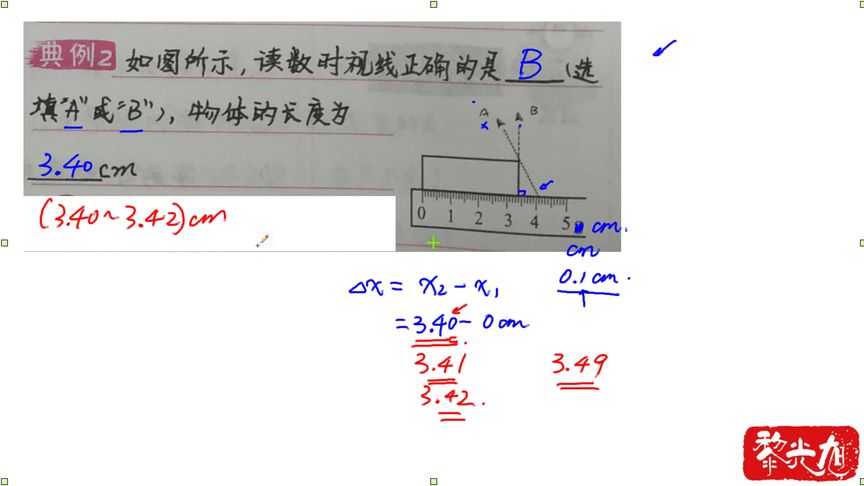 典例2 如图所示，读数时视线正确的是 B (选
填"A"或"B")，物体的长度为
3.40 cm
(3.40~3.42)cm
A B
0 1 2 3 4 5 cm.
cm
0.1cm.
Δx = x₂ - x₁
= 3.40 - 0 cm
3.41 3.49
3.42.
黎光旭